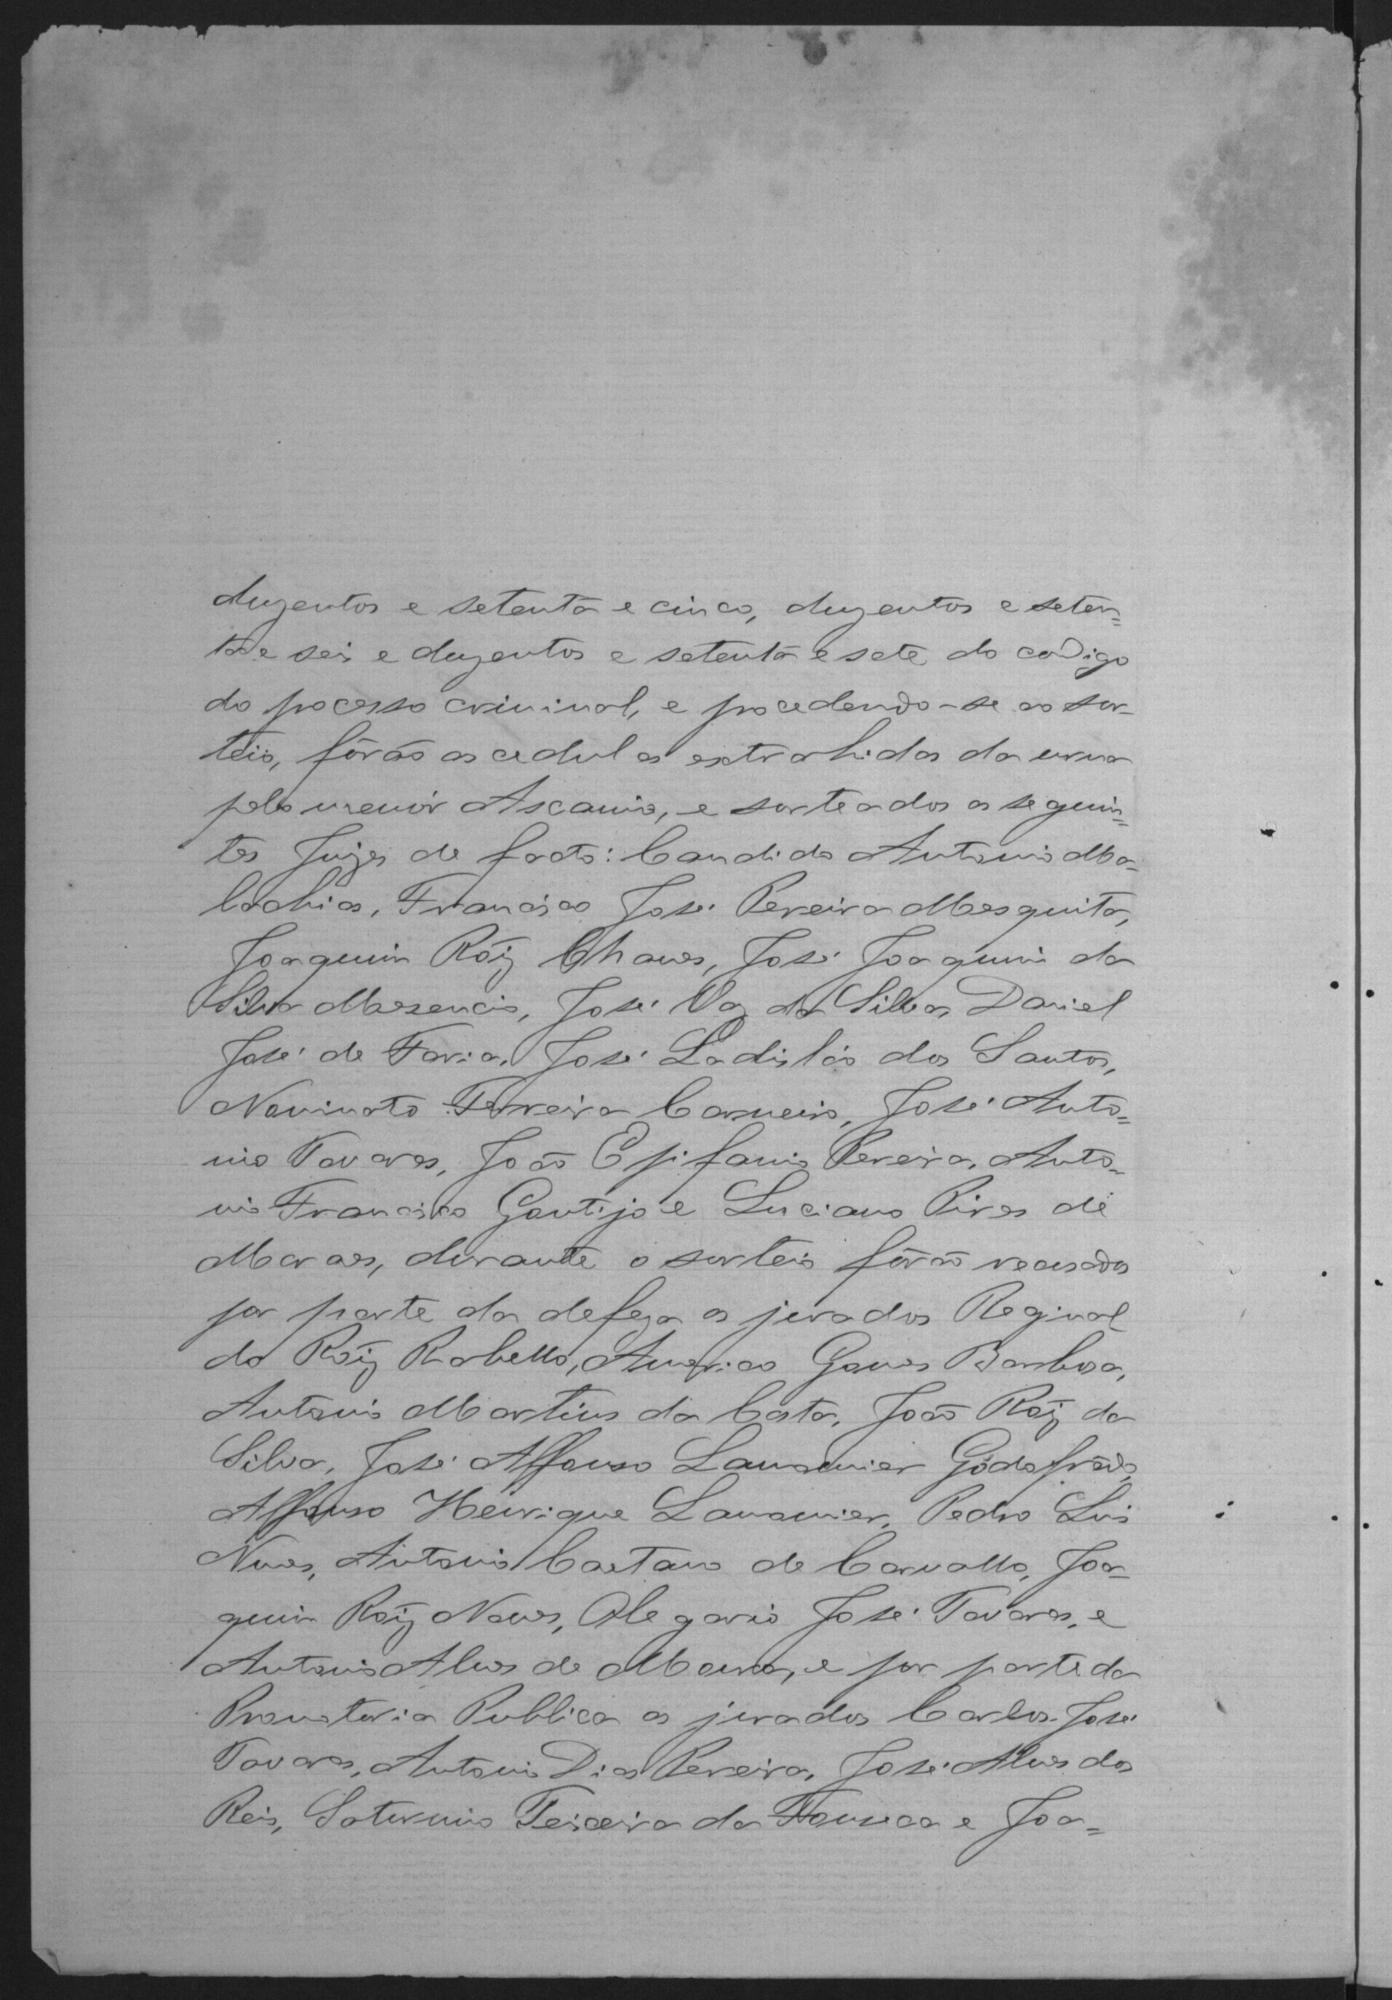 duzentos e setenta e cinco, duzentos e seten=
ta e seis e duzentos e setenta e sete do codigo
do pocesso criminal, e procedendo-se ao sor-
teio, fôrão as cedulas extrahidas da urna
pelo menór Ascanio, e sorteados os seguin=
tes Juizes de facto: Candido Antonio Ma-
lachias, Francisco José Pereira Mesquita,
Joaquim Roiz Chaves, José Joaquim da
Silva Mesencio, José Vaz da Silva, Daniel
José de Faria, José Ladisláo dos Santos,
Novinato Ferreira Carneiro, José Anto=
nio Tavares, João Epifanio Pereira, Anto-
nio Francisco Gontijo e Luciano Pires de
Moraes, durante o sorteio fôrão recusados
por parte da defeza os jurados Reginal-
do Roiz Rabello, Americo Gomes Barbosa,
Antonio Martins da Costa, João Roiz da
Silva, José Affonso Lamounier Godofrêdo,
Affonso Henrique Lamounier, Pedro Luis
Nunes, Antonio Caetano de Carvalho, Joa-
quim Roiz Neves, Olegario José Tavares, e
Antonio Alves de Moura, e por parte da
Promotoria Publica os jurados Carlos José
Tavares, Antonio Dias Pereira, José Alves dos
Reis, Saturnino Teixeira da Fonseca e Joa=